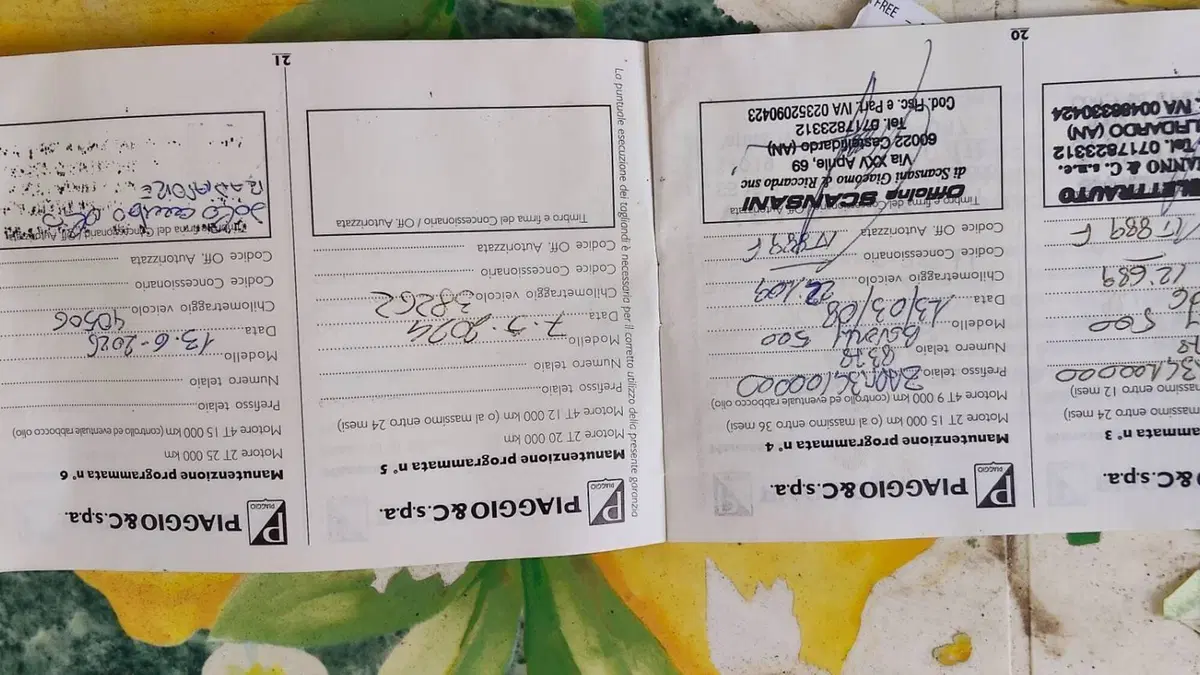 &C.s.p.a.
ammata n° 3
massimo entro 24 mesi)
massimo entro 12 mesi)
3C100000
500
12'689
17889 F
LETTRAUTO
IANNO & C. s.n.c.
Tel. 0717823312
LFIDARDO (AN)
IVA 00486330424
20
PIAGGIO
PIAGGIO&C.s.p.a.
Manutenzione programmata n° 4
Motore 2T 15 000 km (o al massimo entro 36 mesi)
Motore 4T 9 000 km (controllo ed eventuale rabbocco olio)
Prefisso telaio
Numero telaio
Modello 500
Data 13/03/08
Chilometraggio veicolo 22.109
Codice Concessionario
Codice Off. Autorizzata 17889 F
Timbro e firma del Concessionario / Off. Autorizzata
Officina SCANSANI
di Scansani Giacomo & Riccardo snc
Via XXV Aprile, 69
60022 Castelfidardo (AN)
Tel. 0717823312
Cod. Fisc. e Part. IVA 02352090423
* La puntuale esecuzione dei tagliandi è necessaria per il corretto utilizzo della presente garanzia
PIAGGIO
PIAGGIO&C.s.p.a.
Manutenzione programmata n° 5
Motore 2T 20 000 km
Motore 4T 12 000 km (o al massimo entro 24 mesi)
Prefisso telaio
Numero telaio
Modello
Data 7.5.2024
Chilometraggio veicolo 38262
Codice Concessionario
Codice Off. Autorizzata
Timbro e firma del Concessionario / Off. Autorizzata
21
PIAGGIO
PIAGGIO&C.s.p.a.
Manutenzione programmata n° 6
Motore 2T 25 000 km
Motore 4T 15 000 km (controllo ed eventuale rabbocco olio)
Prefisso telaio
Numero telaio
Modello
Data 13.6-2025
Chilometraggio veicolo 40506
Codice Concessionario
Codice Off. Autorizzata
Timbro e firma del Concessionario / Off. Autorizzata
SOLO CAMBIO OLIO
FREE